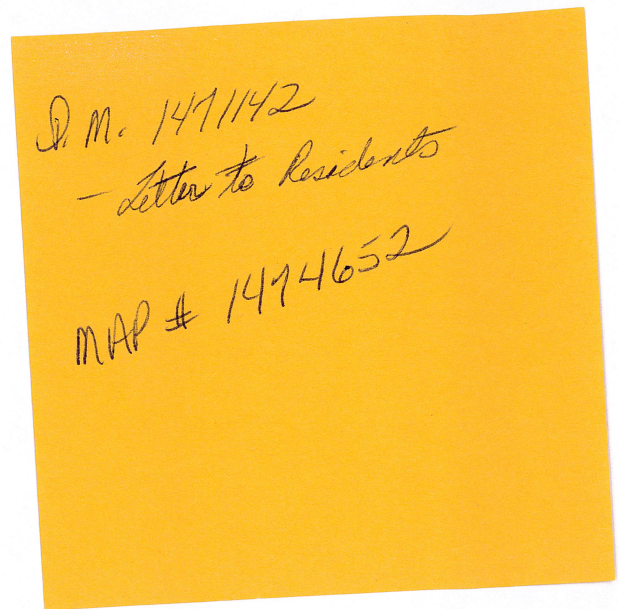 D.M. 1471142
- Letter to Residents
MAP # 1474652